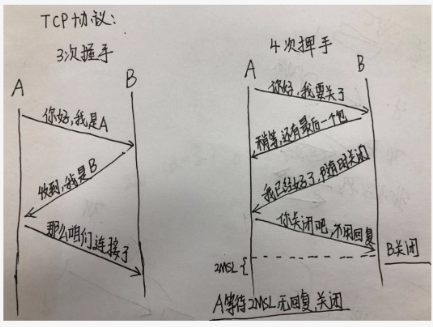 TCP协议:
3次握手
A
B
你好,我是A
收到,我是B
那么咱们连接了
4次挥手
A
B
你好,我要关了
稍等,还有最后一个包
我已经好了,随时关闭
你关闭吧,不用回复
B关闭
2MSL
A等待2MSL无回复,关闭